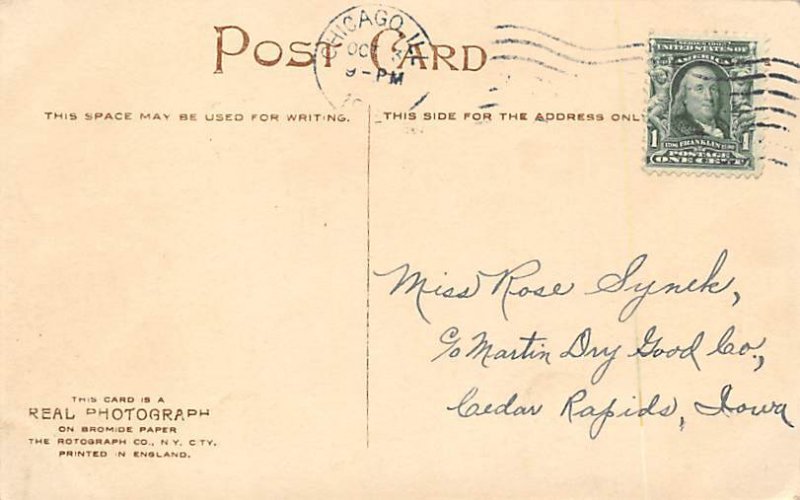 POST CARD
CHICAGO, ILL.
OCT 3
9-PM
THIS SPACE MAY BE USED FOR WRITING.
THIS SIDE FOR THE ADDRESS ONLY
SERIES 1902
UNITED STATES OF
AMERICA
1 1
FRANKLIN
POSTAGE
ONE CENT
Miss Rose Synek,
c/o Martin Dry Good Co.,
Cedar Rapids, Iowa
THIS CARD IS A
REAL PHOTOGRAPH
ON BROMIDE PAPER
THE ROTOGRAPH CO., N.Y. CITY.
PRINTED IN ENGLAND.